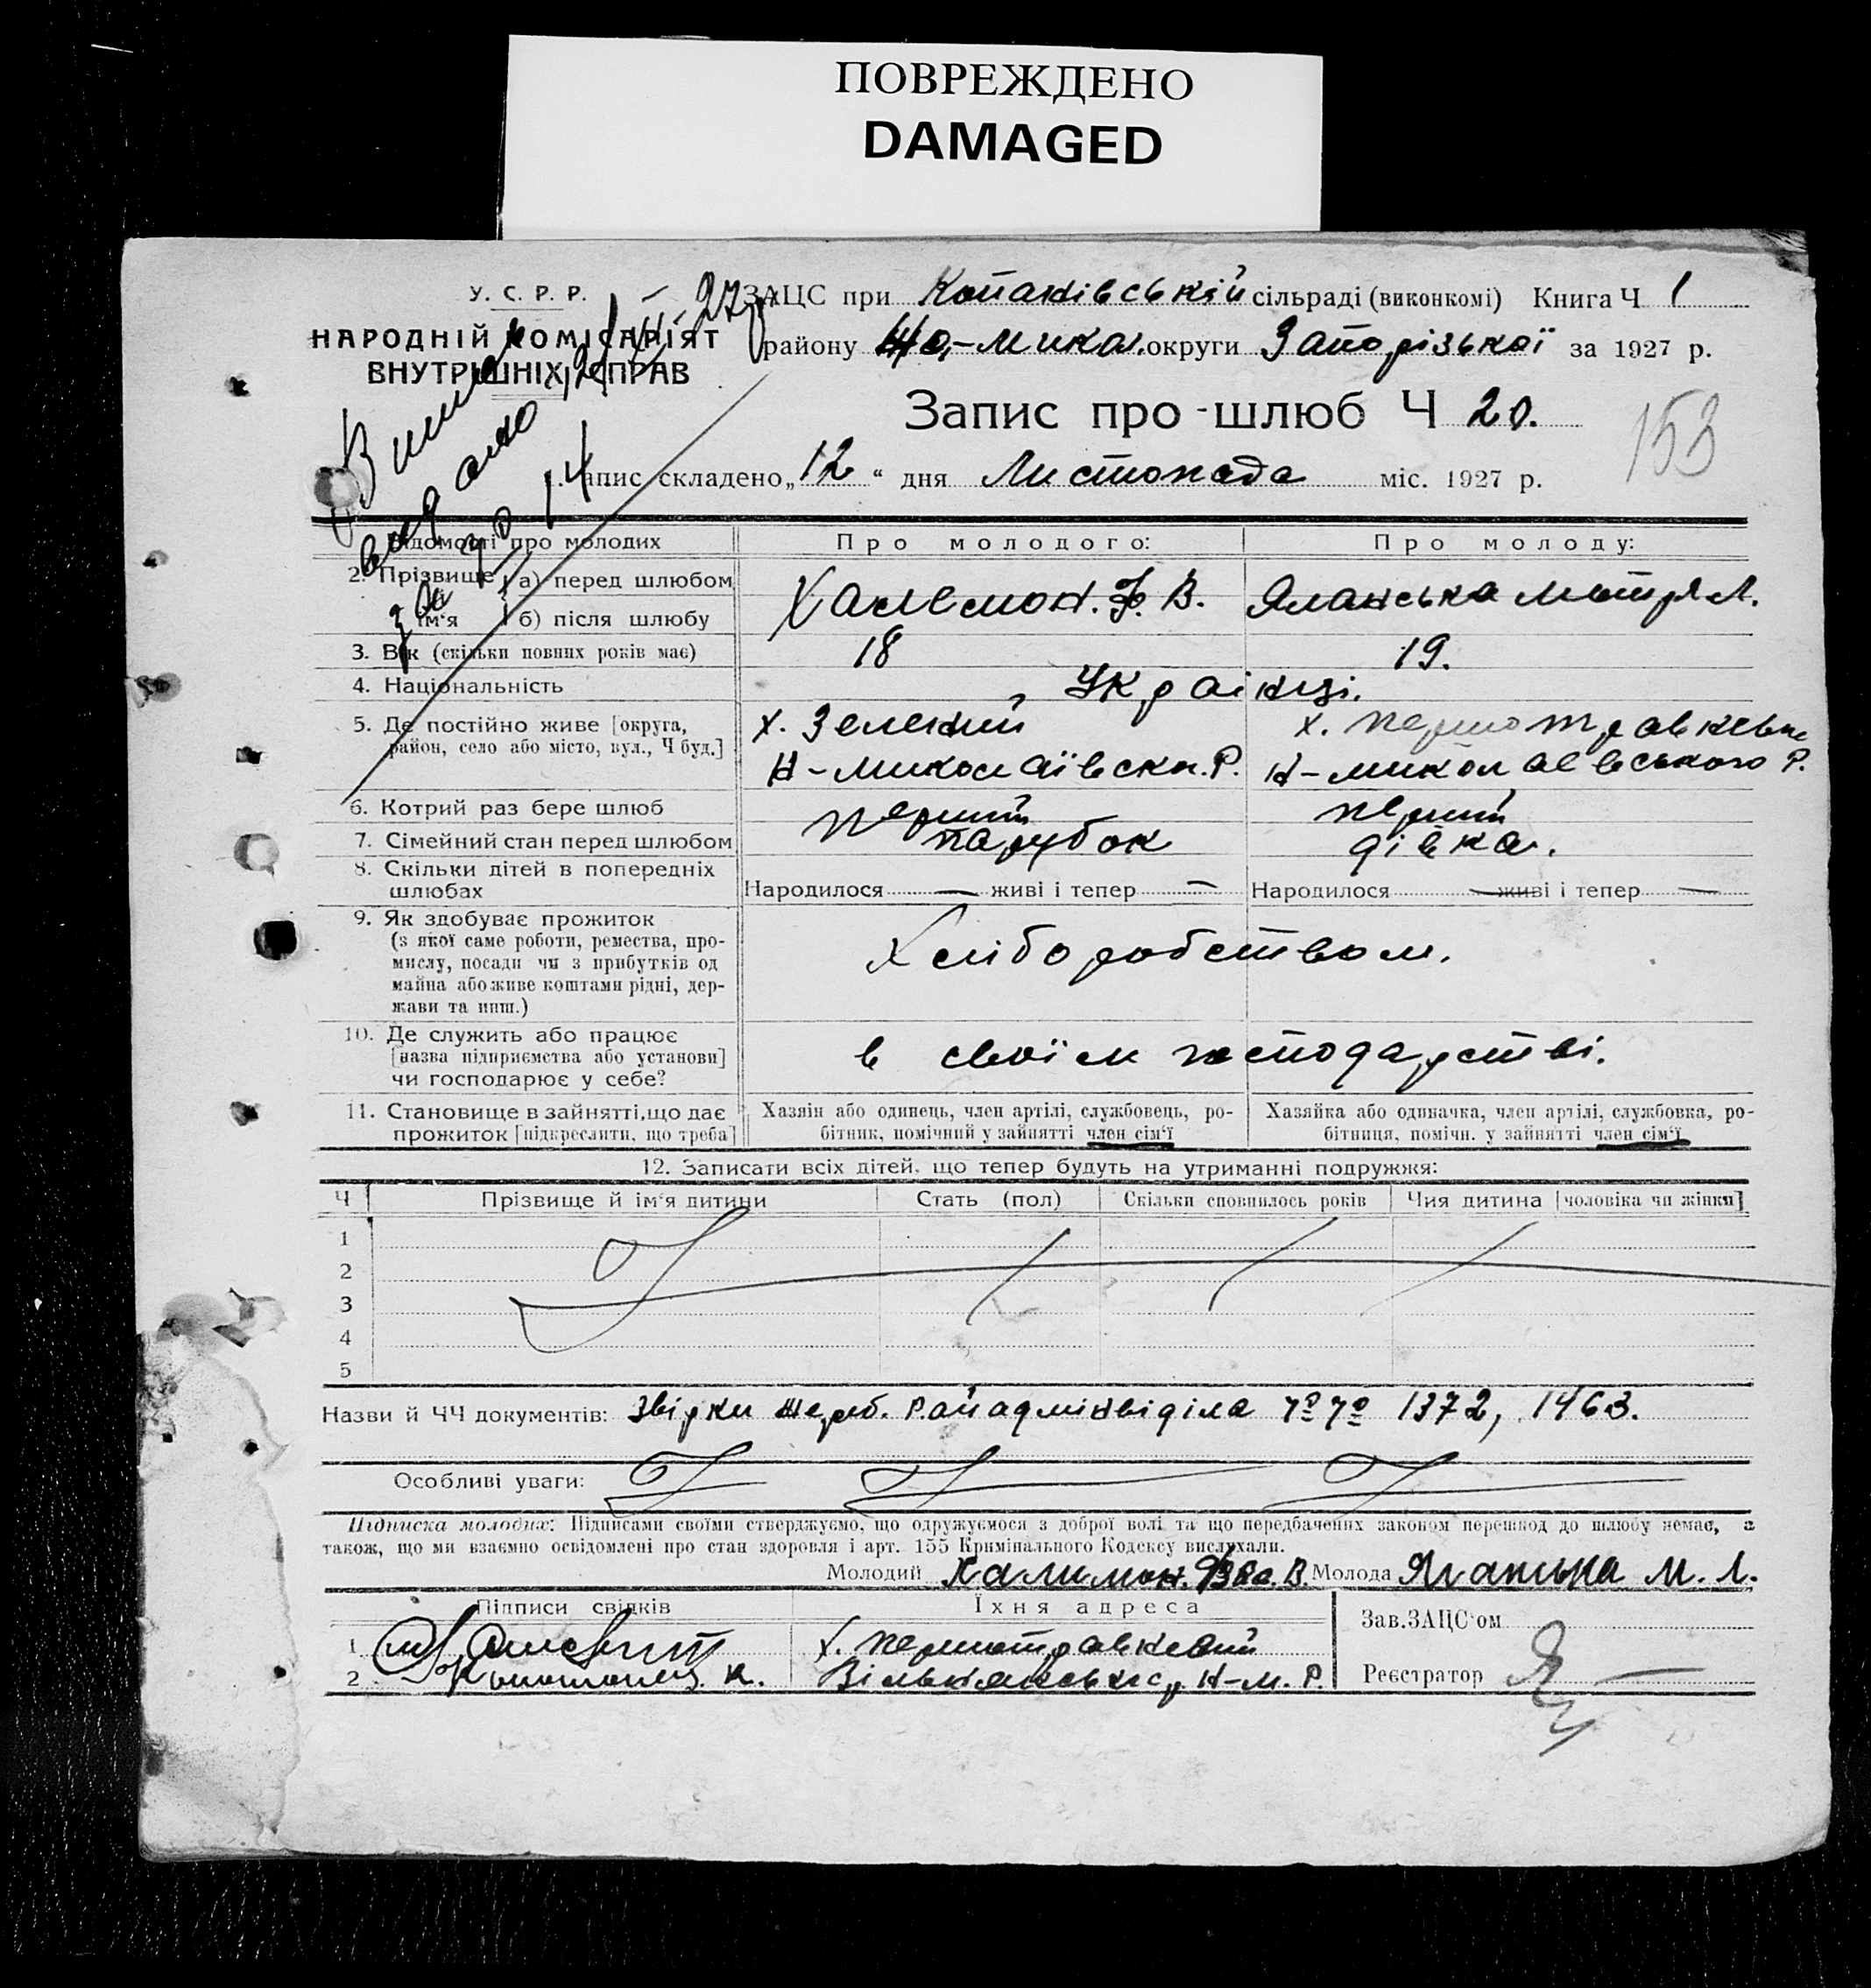 ПОВРЕЖДЕНО
DAMAGED
У. С. Р. Р.
НАРОДНІЙ КОМІСАРІЯТ
ВНУТРІШНІХ СПРАВ
ЗАЦС при Копанівській сільраді (виконкомі) Книга Ч 1
району Но.-Микол. округи Запорізької за 1927 р.
Запис про шлюб Ч 20.
153
Запис складено „12“ дня Листопада міс. 1927 р.
за № 14
Відомості про молодих Про молодого: Про молоду:
2. Прізвище ім'я а) перед шлюбом Халемон. Ф. В. Яланська Мотря Л.
б) після шлюбу
3. Вік (скільки повних років має) 18 19.
4. Національність Українці.
5. Де постійно живе [округа, район, село або місто, вул., Ч буд.] х. Зелений х. першотравневые
Н-Миколаївськ. Р. Н-миколаевського Р.
6. Котрий раз бере шлюб перший перший
7. Сімейний стан перед шлюбом парубок дівка.
8. Скільки дітей в попередніх шлюбах Народилося — живі і тепер — Народилося — живі і тепер —
9. Як здобуває прожиток
(з якої саме роботи, ремества, про-
мислу, посади чи з прибутків од
майна або живе коштами рідні, дер-
жави та инш.)
Хліборобством.
10. Де служить або працює
[назва підприємства або установи]
чи господарює у себе?
в своїм господарстві.
11. Становище в зайнятті, що дає
прожиток [підкреслити, що треба]
Хазяїн або одинець, член артілі, службовець, ро-
бітник, помічний у зайнятті член сім'ї
Хазяйка або одиначка, член артілі, службовка, ро-
бітниця, помічн. у зайнятті член сім'ї
12. Записати всіх дітей, що тепер будуть на утриманні подружжя:
Ч Прізвище й ім'я дитини Стать (пол) Скільки сповнилось років Чия дитина [чоловіка чи жінки]
1
2
3
4
5
Назви й ЧЧ документів: Звірки Райадмінвіділа 1372, 1463.
Особливі уваги:
Підписка молодих: Підписами своїми стверджуємо, що одружуємося з доброї волі та що передбачених законом перешкод до шлюбу немає, а
також, що ми взаємно освідомлені про стан здоровля і арт. 155 Кримінального Кодексу вислухали.
Молодий Халимон. В. Молода Яланська М. Л.
Підписи свідків Їхня адреса Зав. ЗАЦС'ом
1 х. першотравневий
2 К. Н-М. Р. Реєстратор